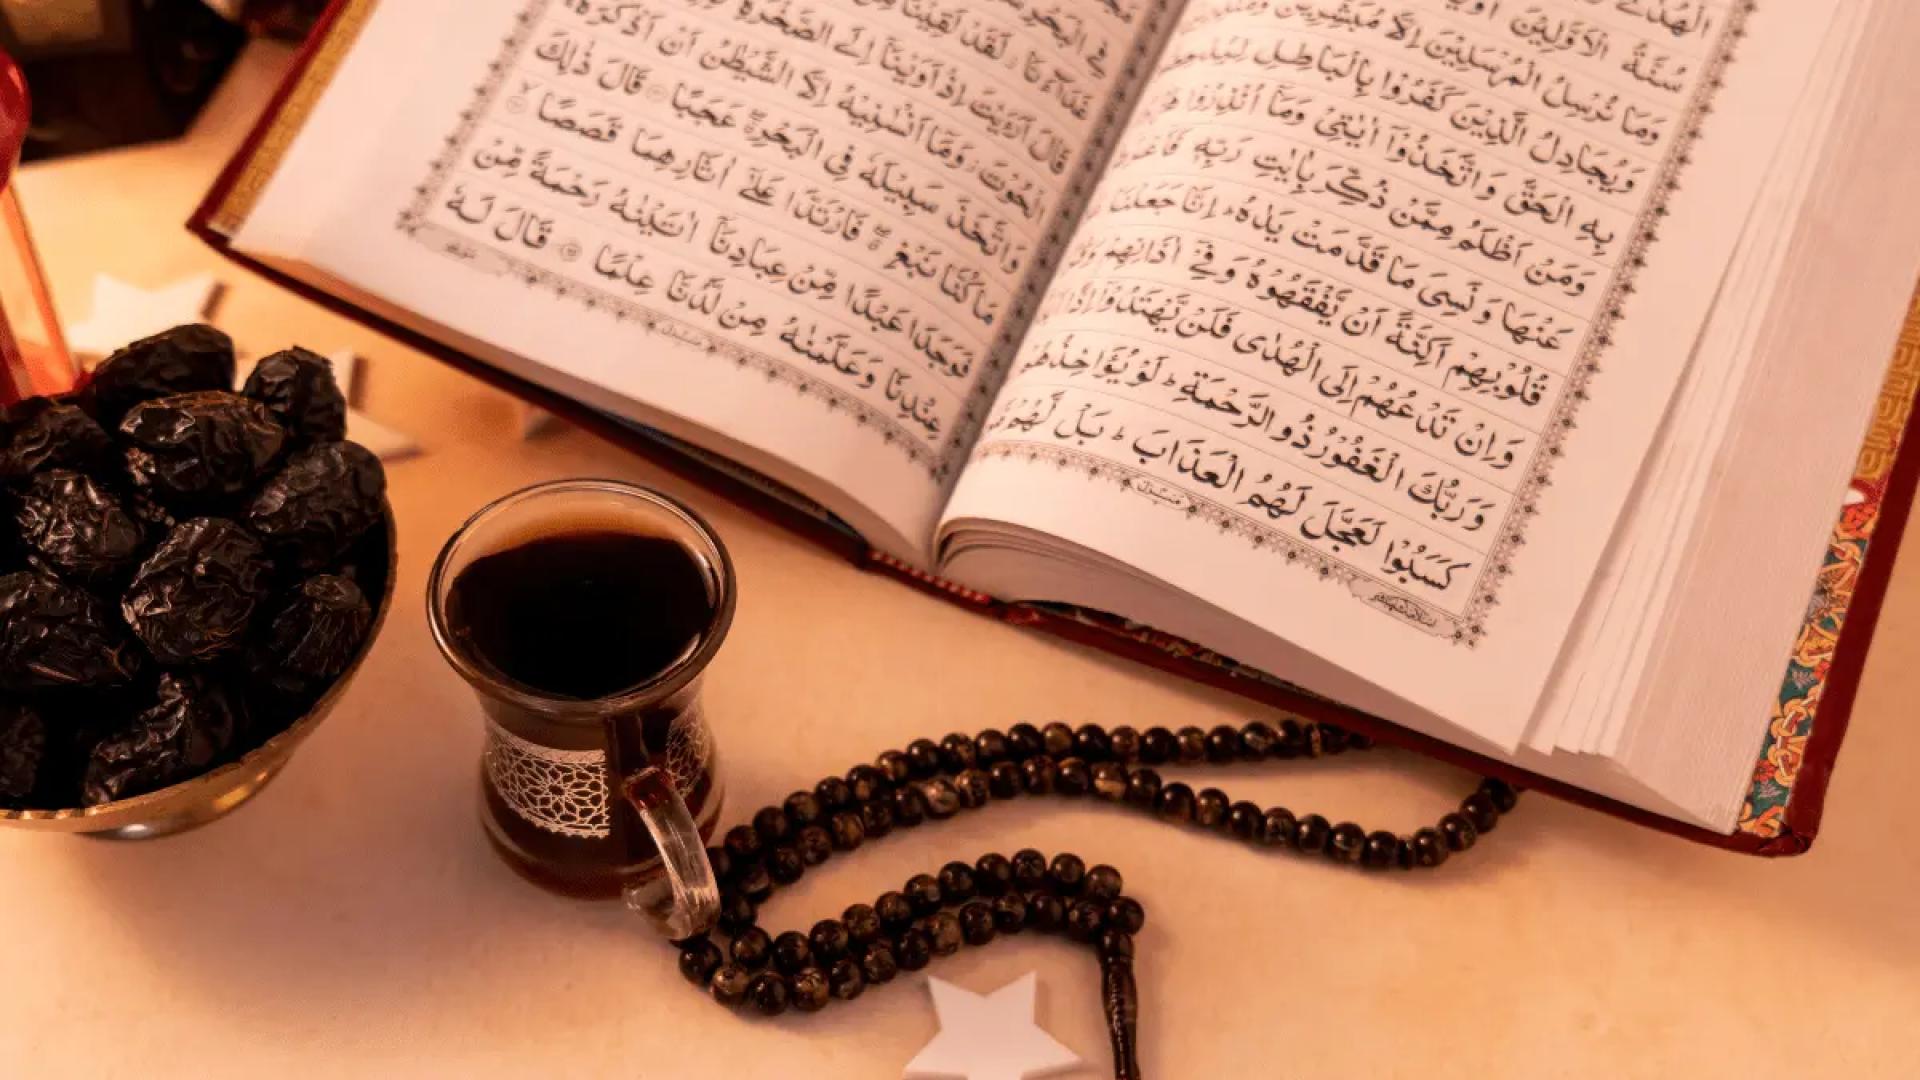 الْهُدٰى
سُنَّةُ الْاَوَّلِيْنَ اَوْ
وَمَا نُرْسِلُ الْمُرْسَلِيْنَ اِلَّا مُبَشِّرِيْنَ
وَيُجَادِلُ الَّذِيْنَ كَفَرُوْا بِالْبَاطِلِ
بِهِ الْحَقَّ وَاتَّخَذُوْٓا اٰيٰتِيْ وَمَآ اُنْذِرُوْا
وَمَنْ اَظْلَمُ مِمَّنْ ذُكِّرَ بِاٰيٰتِ رَبِّهٖ
عَنْهَا وَنَسِيَ مَا قَدَّمَتْ يَدٰهُ ؕ اِنَّا جَعَلْنَا
قُلُوْبِهِمْ اَكِنَّةً اَنْ يَّفْقَهُوْهُ وَفِيْٓ اٰذَانِهِمْ
وَاِنْ تَدْعُهُمْ اِلَى الْهُدٰى فَلَنْ يَّهْتَدُوْٓا اِذًا
وَرَبُّكَ الْغَفُوْرُ ذُو الرَّحْمَةِ ؕ لَوْ يُؤَاخِذُهُمْ
كَسَبُوْا لَعَجَّلَ لَهُمُ الْعَذَابَ ؕ بَلْ لَّهُمْ
منزل
فِي الْبَحْرِ
غَدَآءَنَا ؗ لَقَدْ لَقِيْنَا مِنْ
قَالَ اَرَءَيْتَ اِذْ اَوَيْنَآ اِلَى الصَّخْرَةِ
الْحُوْتَ ؗ وَمَآ اَنْسٰىنِيْهُ اِلَّا الشَّيْطٰنُ اَنْ اَذْكُرَهٗ ۚ
وَاتَّخَذَ سَبِيْلَهٗ فِي الْبَحْرِ ۖ عَجَبًا قَالَ ذٰلِكَ
مَا كُنَّا نَبْغِ ۖ فَارْتَدَّا عَلٰٓى اٰثَارِهِمَا قَصَصًا
فَوَجَدَا عَبْدًا مِّنْ عِبَادِنَآ اٰتَيْنٰهُ رَحْمَةً مِّنْ
عِنْدِنَا وَعَلَّمْنٰهُ مِنْ لَّدُنَّا عِلْمًا قَالَ لَهٗ